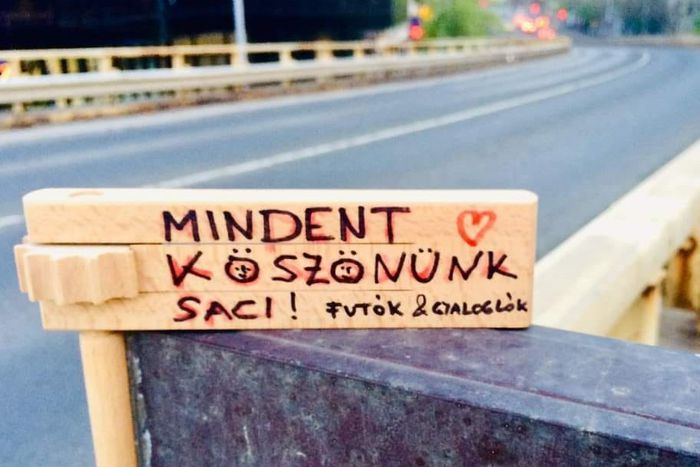 MINDENT
KÖSZÖNÜNK
SACI! FUTÓK & GYALOGLÓK